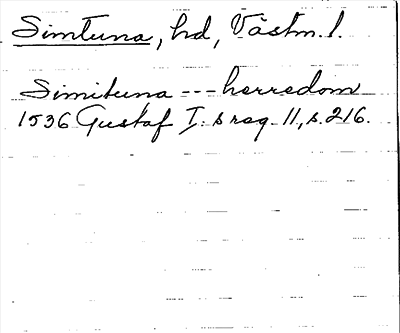 Simtuna, hd, Västm. l.
Simituna --- herredom
1536 Gustaf I:s reg. 11, s. 216.